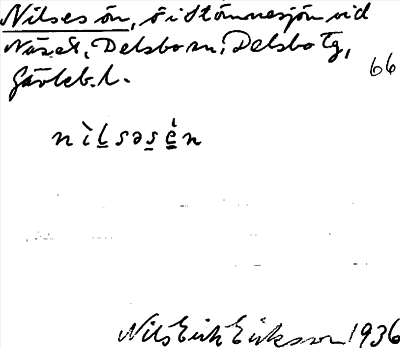 Nilses ön, ö i Stömnesjön vid
Näset, Delsbo sn, Delsbo tg,
Gävleb. l.
66
nìlsəsèn
Nils Erik Eriksson 1936